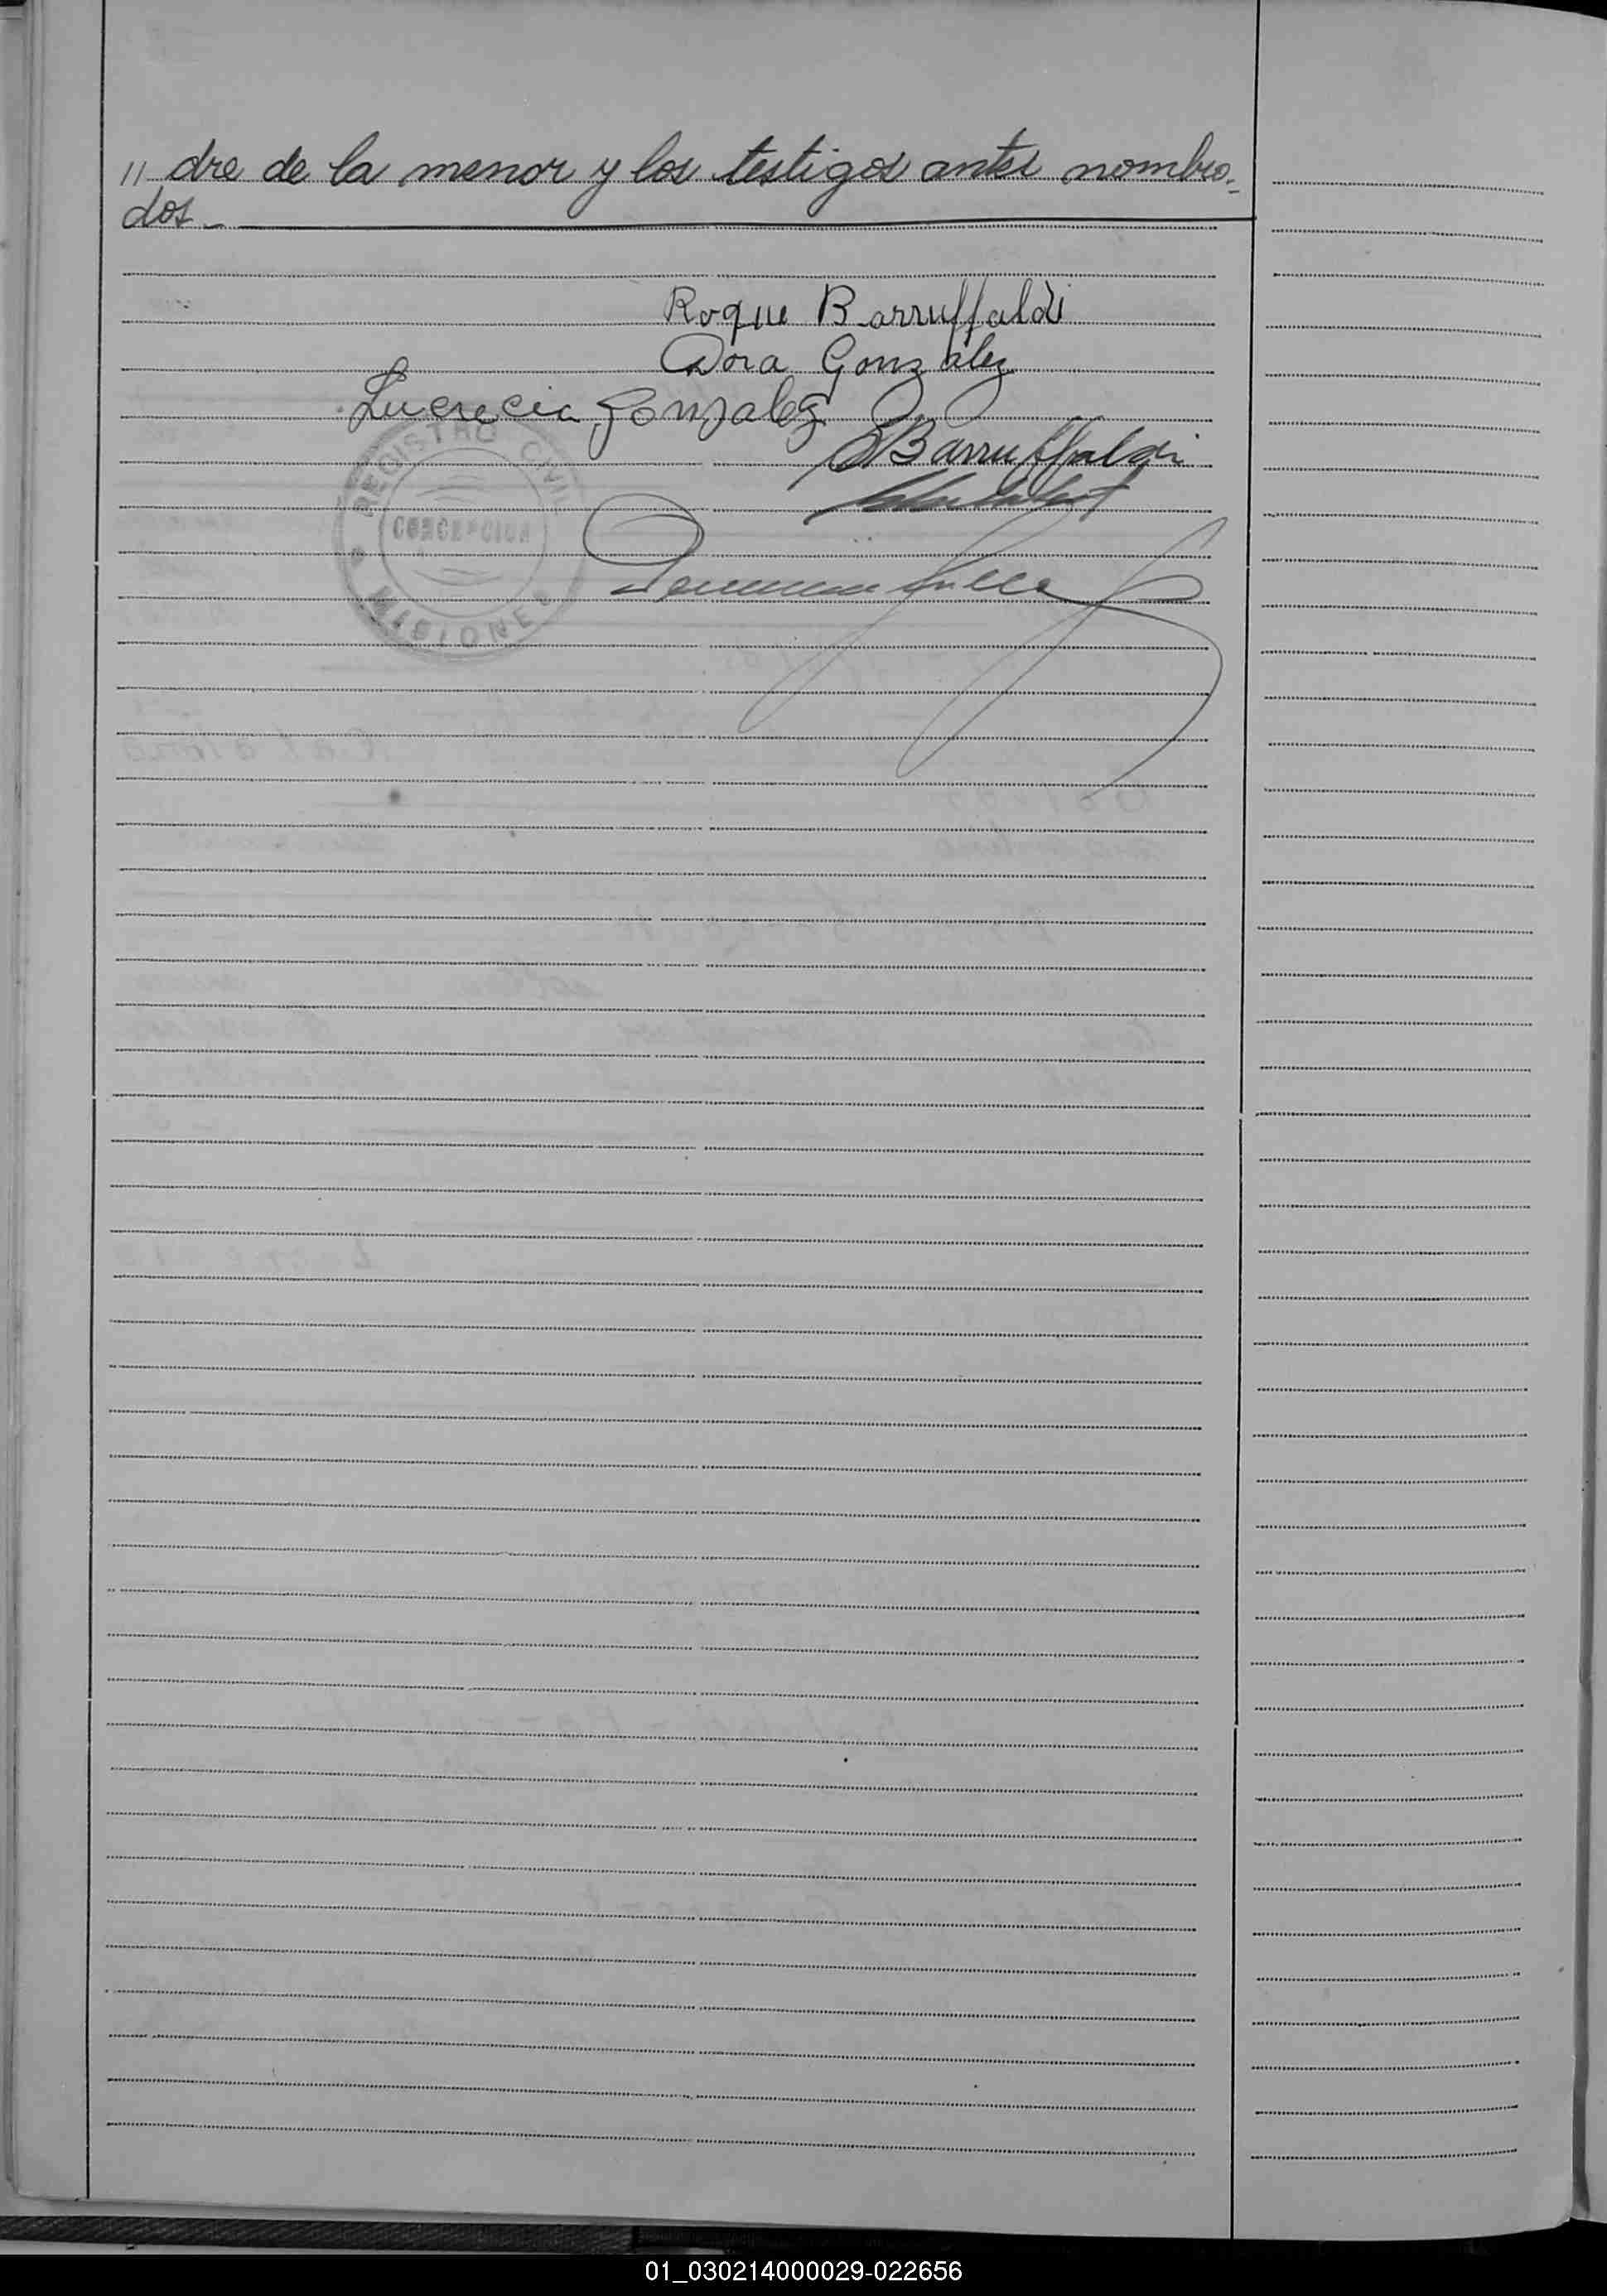 // dre de la menor y los testigos antes nombra-
dos.-
Roque Barruffaldi
Dora González
Lucrecia Gonzalez
Barruffaldi
REGISTRO CIVIL
CONCEPCION
MISIONES
01_030214000029-022656